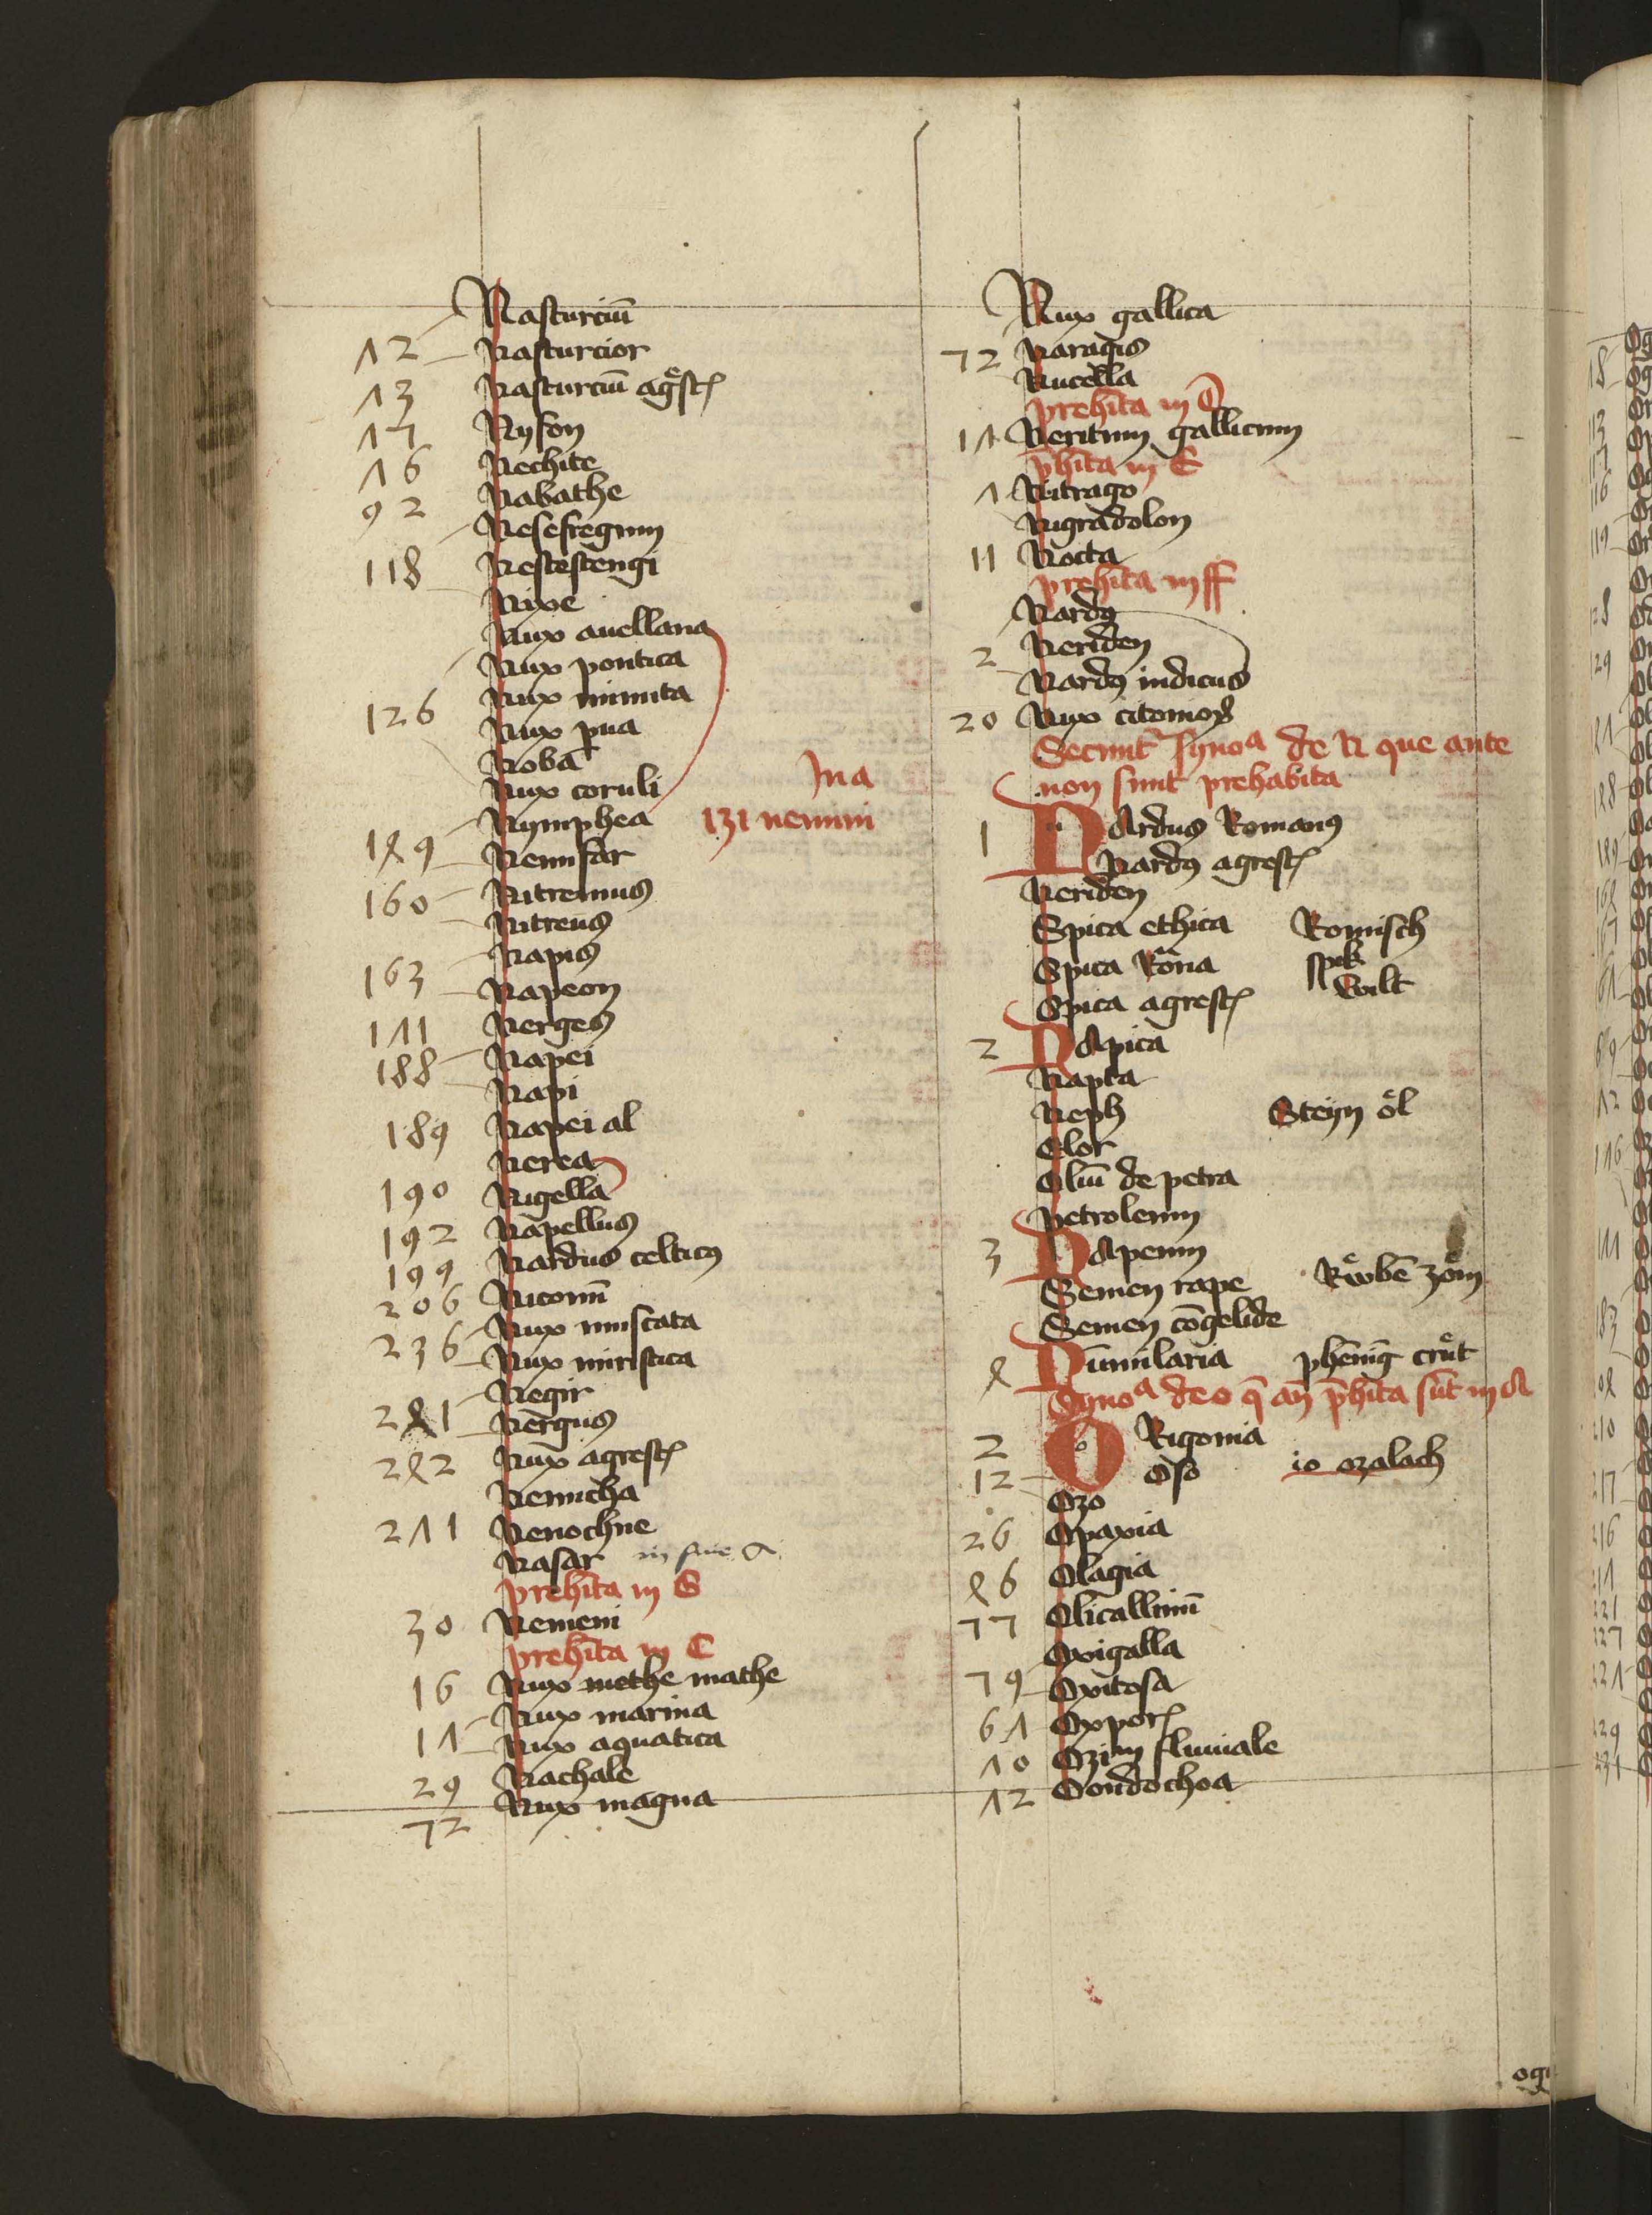 Nasturciū
12 Nasturcior
13 Nasturciū agͤstꝭ
17 Nyson
16 Nechite
92 Nabathe
Nesefregum
118 Nestestengi
Nixe
Nux auellana
Nux pontica
126 Nux minuta
Nux pua
Nobā
Nux coruli
Nymphea
149 Nenufar
160 Nitremus
Nitreus
Napis
163 Napeon
Nerges
188 Napei
Napi
189 Napei al
Nerea
190 Nigella
192 Napellus
199 Nardus celticꝰ
206 Niconū
Nux muscata
236 Nux miristica
Negir
241 Nergus
242 Nux agrestꝭ
Nenucha
Nenochne
Nasar
prehīta in S
30 Nemeni
prehīta in C
16 Nux methe mathe
Nux marina
Nux aquatica
29 Nachale
72 Nux magna
In a
131 nemini
Nux gallica
72 Naragis
Nucella
prehīta in O
Neritum gallicum
p̄hīta in E
Nitrago
Nigradolon
11 Nocta
prehīta in ff
Nardꝰ
2 Neriden
Nardꝰ indicus
20 Nux citomoꝝ
Secunt̄ synoᵃ de N que ante
non sunt prehabita
1 NArdus Romanꝰ
Nardꝰ agrestꝭ
Neriden
Spica ethica Romisch
Spica Rōna spik
Spica agrestꝭ Wilt
2 NApica
Napta
Neph Steyn öl
Elor
Oliū de petra
Petroleum
3 NApeum
Semen rape Rͤwbē zōm
Semen cōgelide
4 Nūmularia phēnīg crůt
Synoᵃ de o q̄ an̄ p̄hīta sūt in A
2 ORigonia
12 Oso io ozalach
Ozo
26 Opaxia
46 Olagia
77 Olicallimū
Oxigalla
79 Oxitosa
Oxporꝭ
Ozim fluuiale
12 Oondochoa